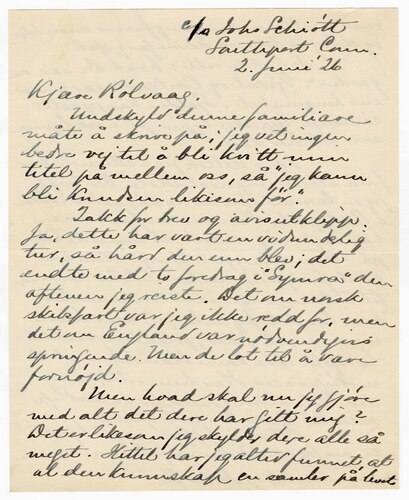 c/o Johs Schiött
Southport Conn.
2. Juni '26
Kjære Rölvaag.
Undskyld denne familiære
måte å skrive på; jeg vet ingen
bedre vej til å bli kvitt min
titel på mellem oss, så "jeg kann
bli Knudsen likesom för".
Takk for brev og avisutklipp.
Ja, dette har vært en vidunderlig
tur, så hård den enn blev; det
endte med to fredrag i "Symra" den
aftenen jeg reiste. Det om norsk
skibsfart var jeg ikke redd for, men
det om England var nödvendigvis
springende. Men de lot til å være
fornöjd.
Men hvad skal nu jeg gjöre
med alt det dere har gitt mig?
Det er likesom jeg skylder dere alle så
meget. Hittil har jeg altid funnet, at
al den kunnskap en samler på levet